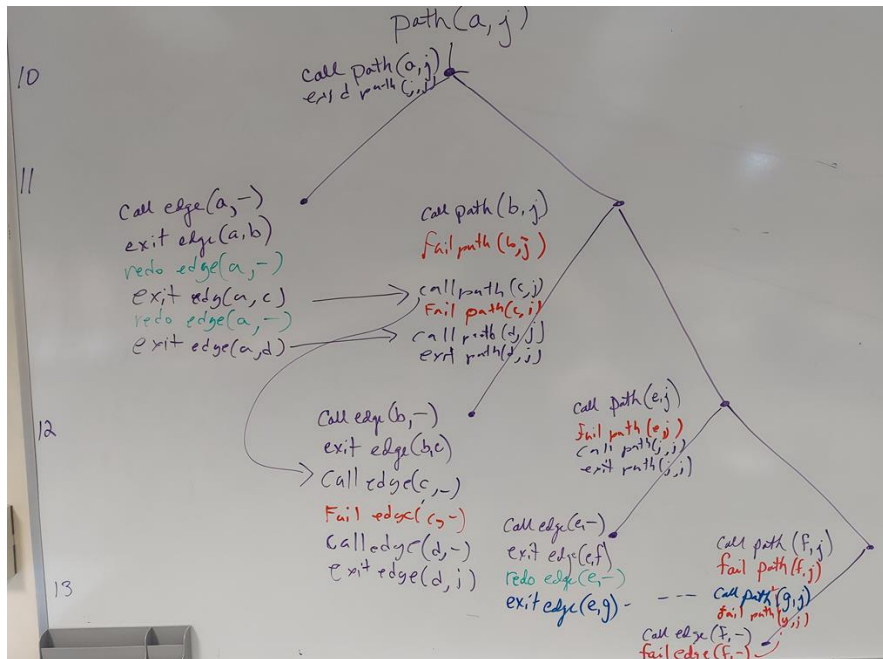 path(a,j)
10
call path(a,j)
exit path(j,j)
11
call edge(a,-)
exit edge(a,b)
redo edge(a,-)
exit edg(a,c)
redo edge(a,-)
exit edge(a,d)
call path(b,j)
fail path(b,j)
call path(c,j)
Fail path(c,j)
call path(d,j)
exit path(d,j)
12
Call edge(b,-)
exit edge(b,e)
Call edge(c,-)
Fail edge(c,-)
Call edge(d,-)
exit edge(d,j)
call path(e,j)
fail path(e,j)
call path(j,j)
exit path(j,j)
13
Call edge(e,-)
exit edge(e,f)
redo edge(e,-)
exit edge(e,g) - - - -
call path(f,j)
fail path(f,j)
call path(g,j)
fail path(g,j)
Call edge(f,-)
fail edge(f,-)